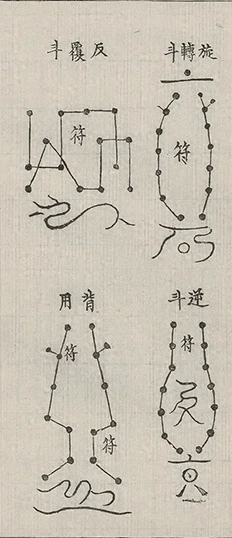 旋轉斗
符
反覆斗
符
逆斗
符
背用
符
符